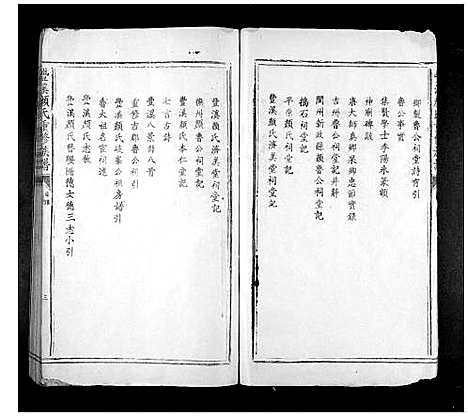 御製魯公祠堂詩有引
魯公事實
集賢學士李陽氷篆額
神廟碑跋
唐大師真卿杲卿忠節實錄
吉州魯公祠堂記并辭
閬州新政縣顏魯公祠堂記
搞石祠堂記
平原顏氏祠堂記
豐溪顏氏濟美堂記
豐溪顏氏濟美堂記
撫州顏魯公祠堂記
豐溪顏氏本仁堂記
七言古詩
豐溪八景詩八首
重修吉郡魯公祠引
豐溪顏氏岐峯公祖房譜引
魯大祖名宦祠述
豐溪顏氏志教
豐溪顏氏榮興德士德三志小引
豐溪顏氏重修族譜
目錄
三